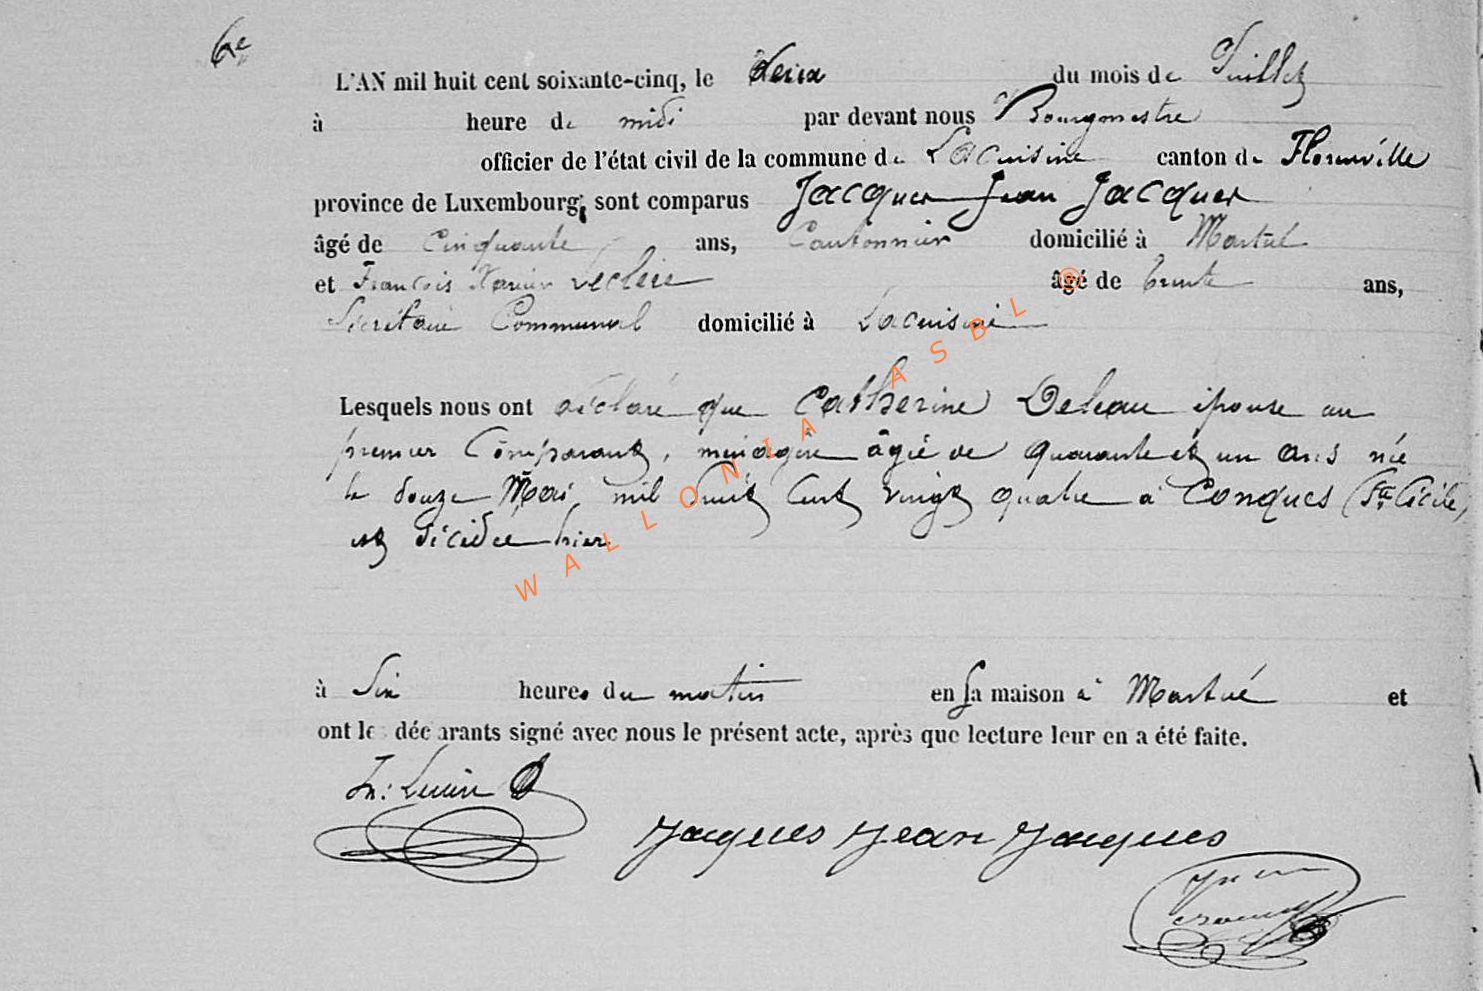 6e
L'AN mil huit cent soixante-cinq, le deux du mois de Juillet
à heure de midi par devant nous Bourgmestre
officier de l'état civil de la commune de Lacuisine canton de Florenville
province de Luxembourg, sont comparus Jacques Jean Jacques
âgé de Cinquante ans, Cantonnier domicilié à Martué
et François Xavier Leclere âgé de trente ans,
Sécrétaire Communal domicilié à Lacuisine
Lesquels nous ont déclaré que Catherine Deleau épouse au
premier Comparant, ménagère âgée de quarante et un ans née
le douze Mai mil huit cent vingt quatre à Conques (Ste Cécile)
est décédée hier
à Six heures du matin en sa maison à Martué et
ont les déclarants signé avec nous le présent acte, après que lecture leur en a été faite.
Jacques Jean Jacques
WALLONIA ASBL ©